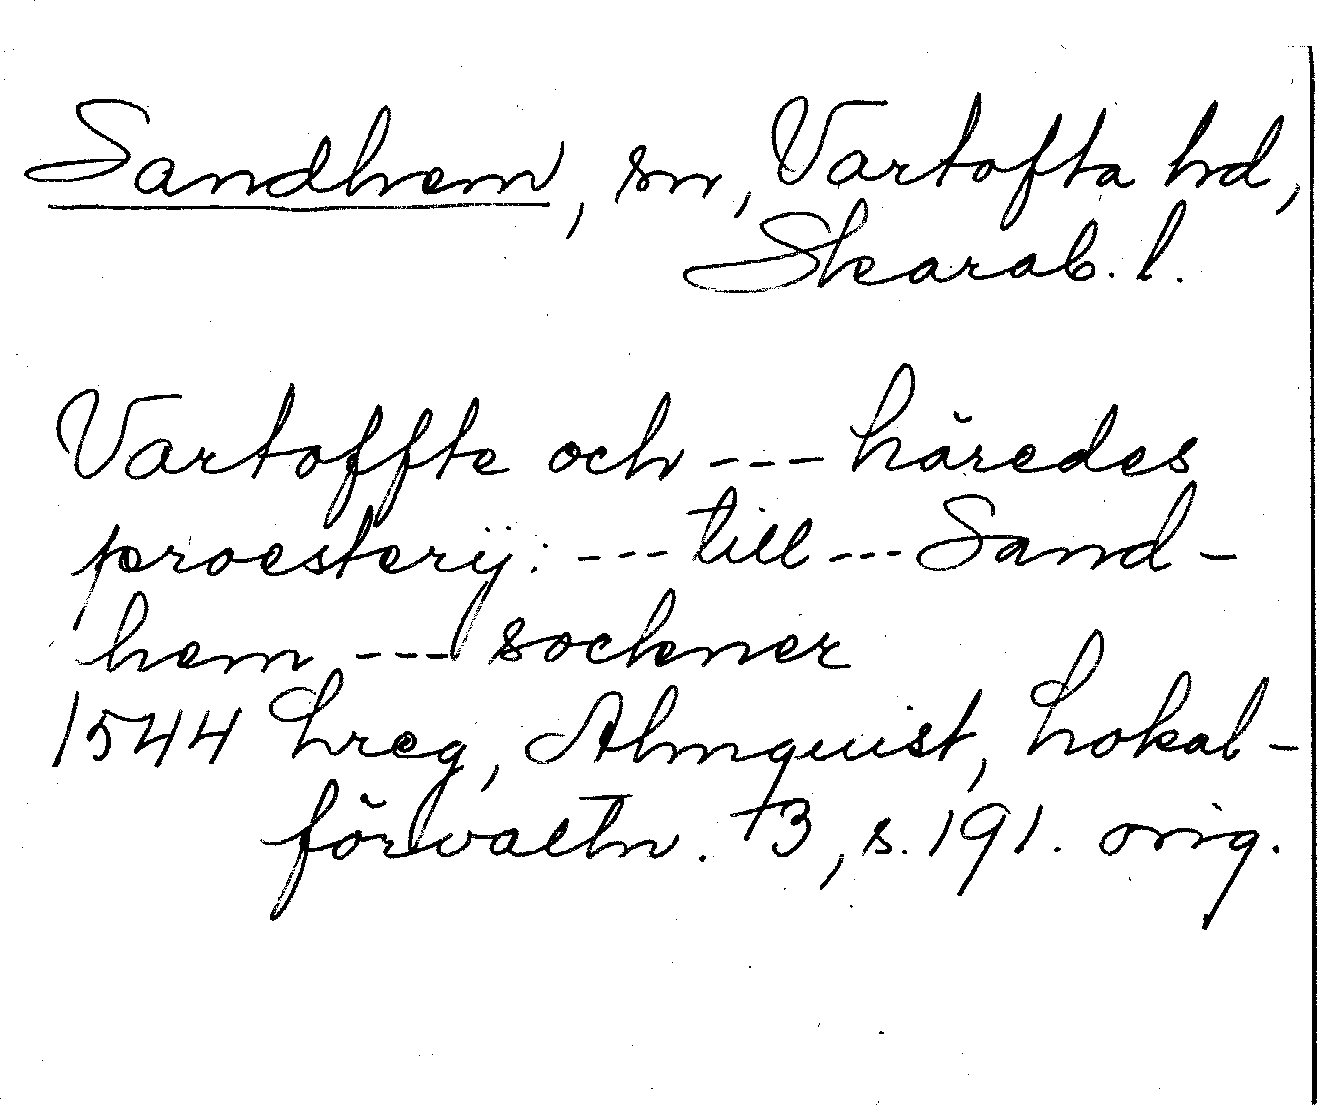 Sandhem, sn, Vartofta hd,
Skarab. l.
Vartoffte och --- häredes
proesterij: --- till --- Sand-
hem --- sockner
1544 Lreg, Almquist, Lokal-
förvaltn. +3, s. 191. orig.